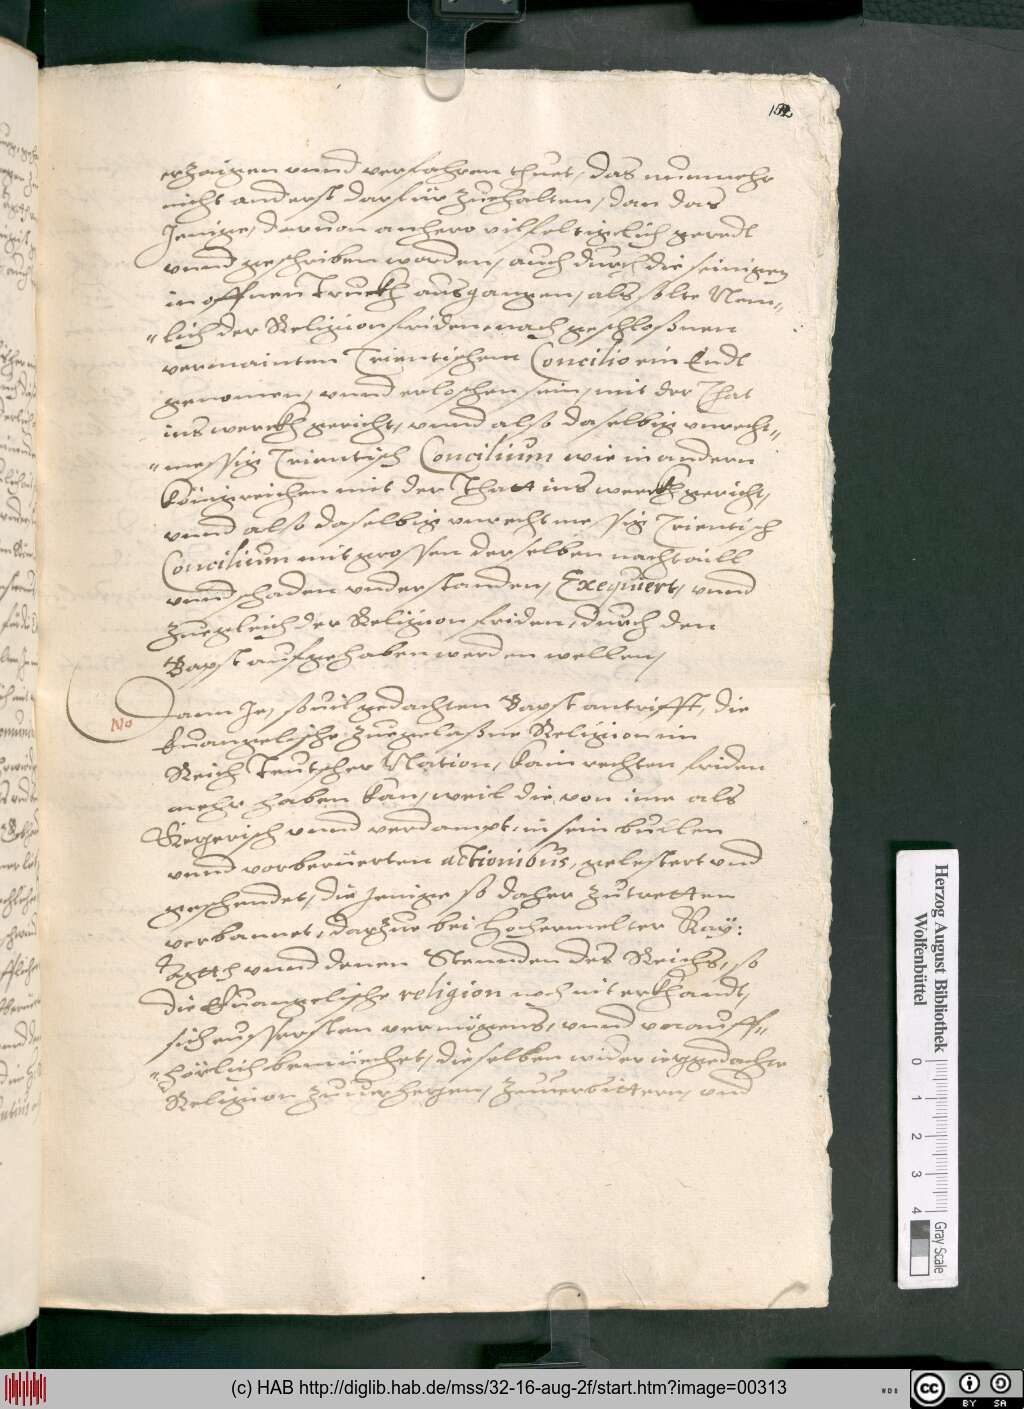 152
erzaigen vnnd verfahren thuet, das nunmehr
nicht anderst darfür zuehalten, dan das
Jenige, daruon anhero vilfeltigclich geredt
vnnd geschriben worden, auch durch die seinigen
in offnen Truckh ausgangen, als solte Nem=
=lich der Religionsfriden, nach geschloßnen
vermainten Trientischem Concilio ein Endt
genomen, vnnd erloschen sein, mit der That
ins werckh gericht, vnnd also daselbig vnrecht=
=messig Trientisch Concilium wie in andern
Königreichen mit der Thatt ins werckh gericht,
vnnd also daselbig vnrechtmessig Trientisch
Concilium mit grossen derselben nachtaill
vnnd schaden vnderstanden, Exequiert, vnnd
zuegleich der Religion friden, durch den
Bapst aufgehaben werden wellen,
No
Dann Je, souil gedachten Bapst antrifft, die
Euangelische zuegelaßne Religion im
Reich Teutscher Nation, kain rechten friden
mehr haben kan, weil die von ime als
Kezerisch vnnd verdampt, in sein bullen
vnnd vorberüerten actionibus, gelestert vnd
geschendet, die Jenige so daher zutretten
verbannet, darzue bei Hochermelter Kay:
Mtt vnnd denen Stennden des Reichs, so
die Euangelische religion noch nit erkhandt,
sich eussersten vermögens, vnnd vnauff=
=hörlich bemüechet, dieselben wider ieggedachte
Religion zuuerhezen, zuuerbittern, vnd
Herzog August Bibliothek
Wolfenbüttel
0 1 2 3 4
Gray Scale
(c) HAB http://diglib.hab.de/mss/32-16-aug-2f/start.htm?image=00313
WDB
cc BY SA